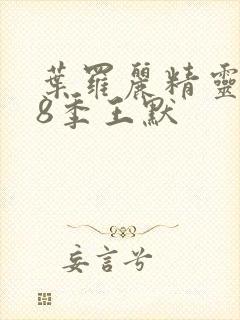 葉羅麗精靈
8季王默
妄言兮